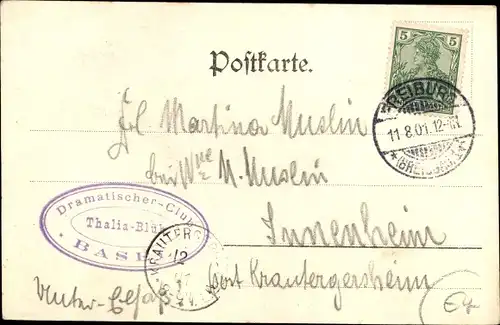 Postkarte.
5 5
FREIBURG
11.8.01.12-1N.
* (BREISGAU) *
Frl Martina Muslin
bei Wwe M. Muslin
Innenheim
Post Krautergersheim
Unter-Elsaß
Dramatischer-Club
Thalia-Blü
BASEL
KRAUTERG
12